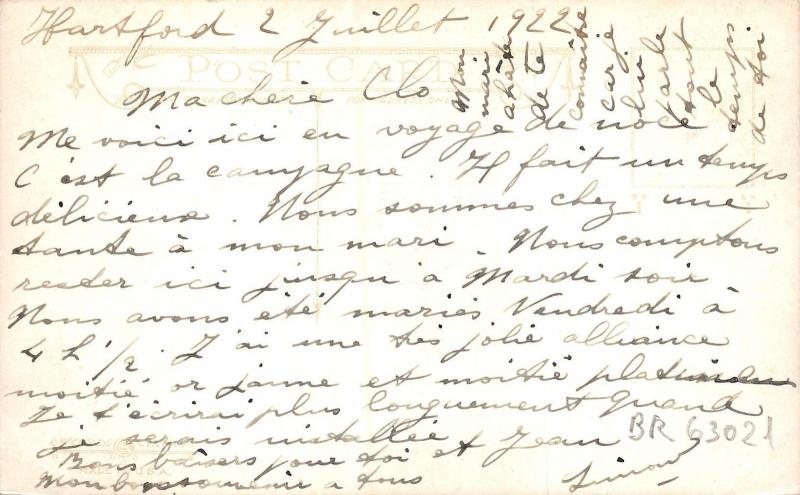 Hartford 2 Juillet 1922
POST CARD
Ma chère Clo
Me voici ici en voyage de noce
C'est la campagne. Il fait un temps
délicieux. Nous sommes chez une
tante à mon mari. Nous comptons
rester ici jusqu'à Mardi soir
Nous avons été mariés Vendredi à
4 h 1/2. J'ai une très jolie alliance
moitié or jaune et moitié
Je t'écrirai plus longuement quand
je serais installée
Bons baisers pour toi et Jean
Mon bon souvenir à tous
BR 63021
Mon
mari
a hâte
de te
connaître
car je
lui
parle
tout
le
temps
de toi